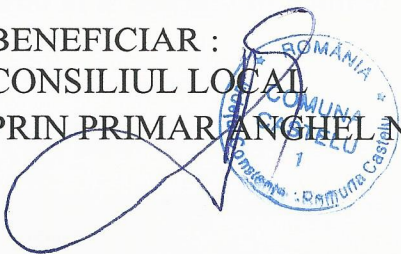 BENEFICIAR :
CONSILIUL LOCAL
PRIN PRIMAR ANGHEL N
ROMÂNIA
COMUNA
CASTELU
1
Constanța
Comuna Castelu